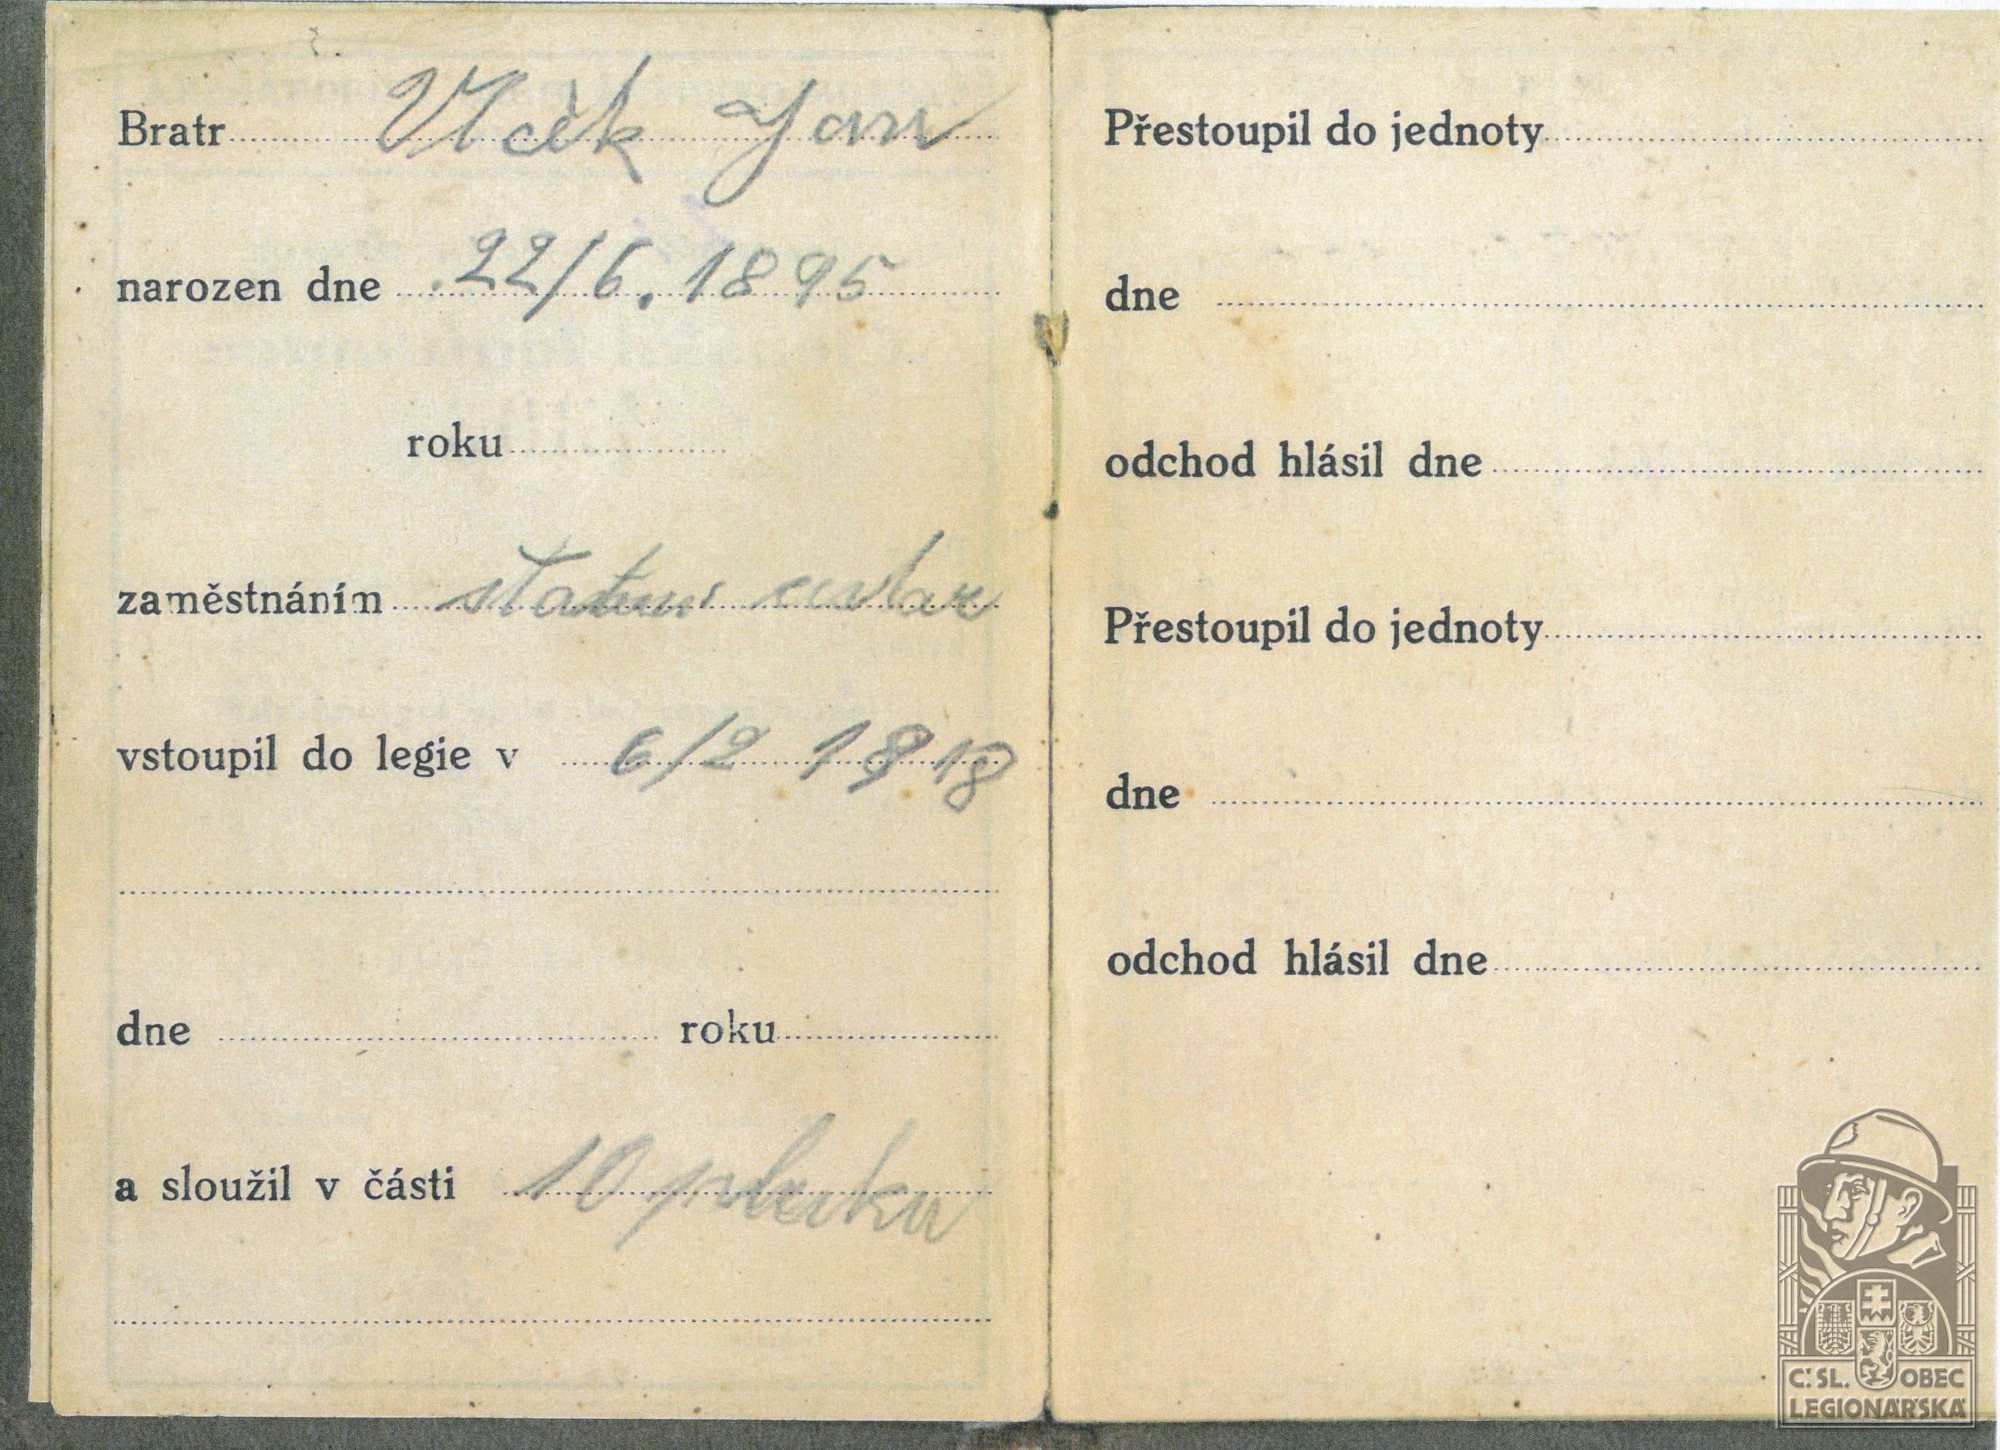 Bratr Vlcěk Jan
narozen dne 22/6. 1895
roku
zaměstnáním statni cestar
vstoupil do legie v 6/2 1918
dne roku
a sloužil v části 10 pluku
Přestoupil do jednoty
dne
odchod hlásil dne
Přestoupil do jednoty
dne
odchod hlásil dne
Č. SL. OBEC
LEGIONÁŘSKÁ